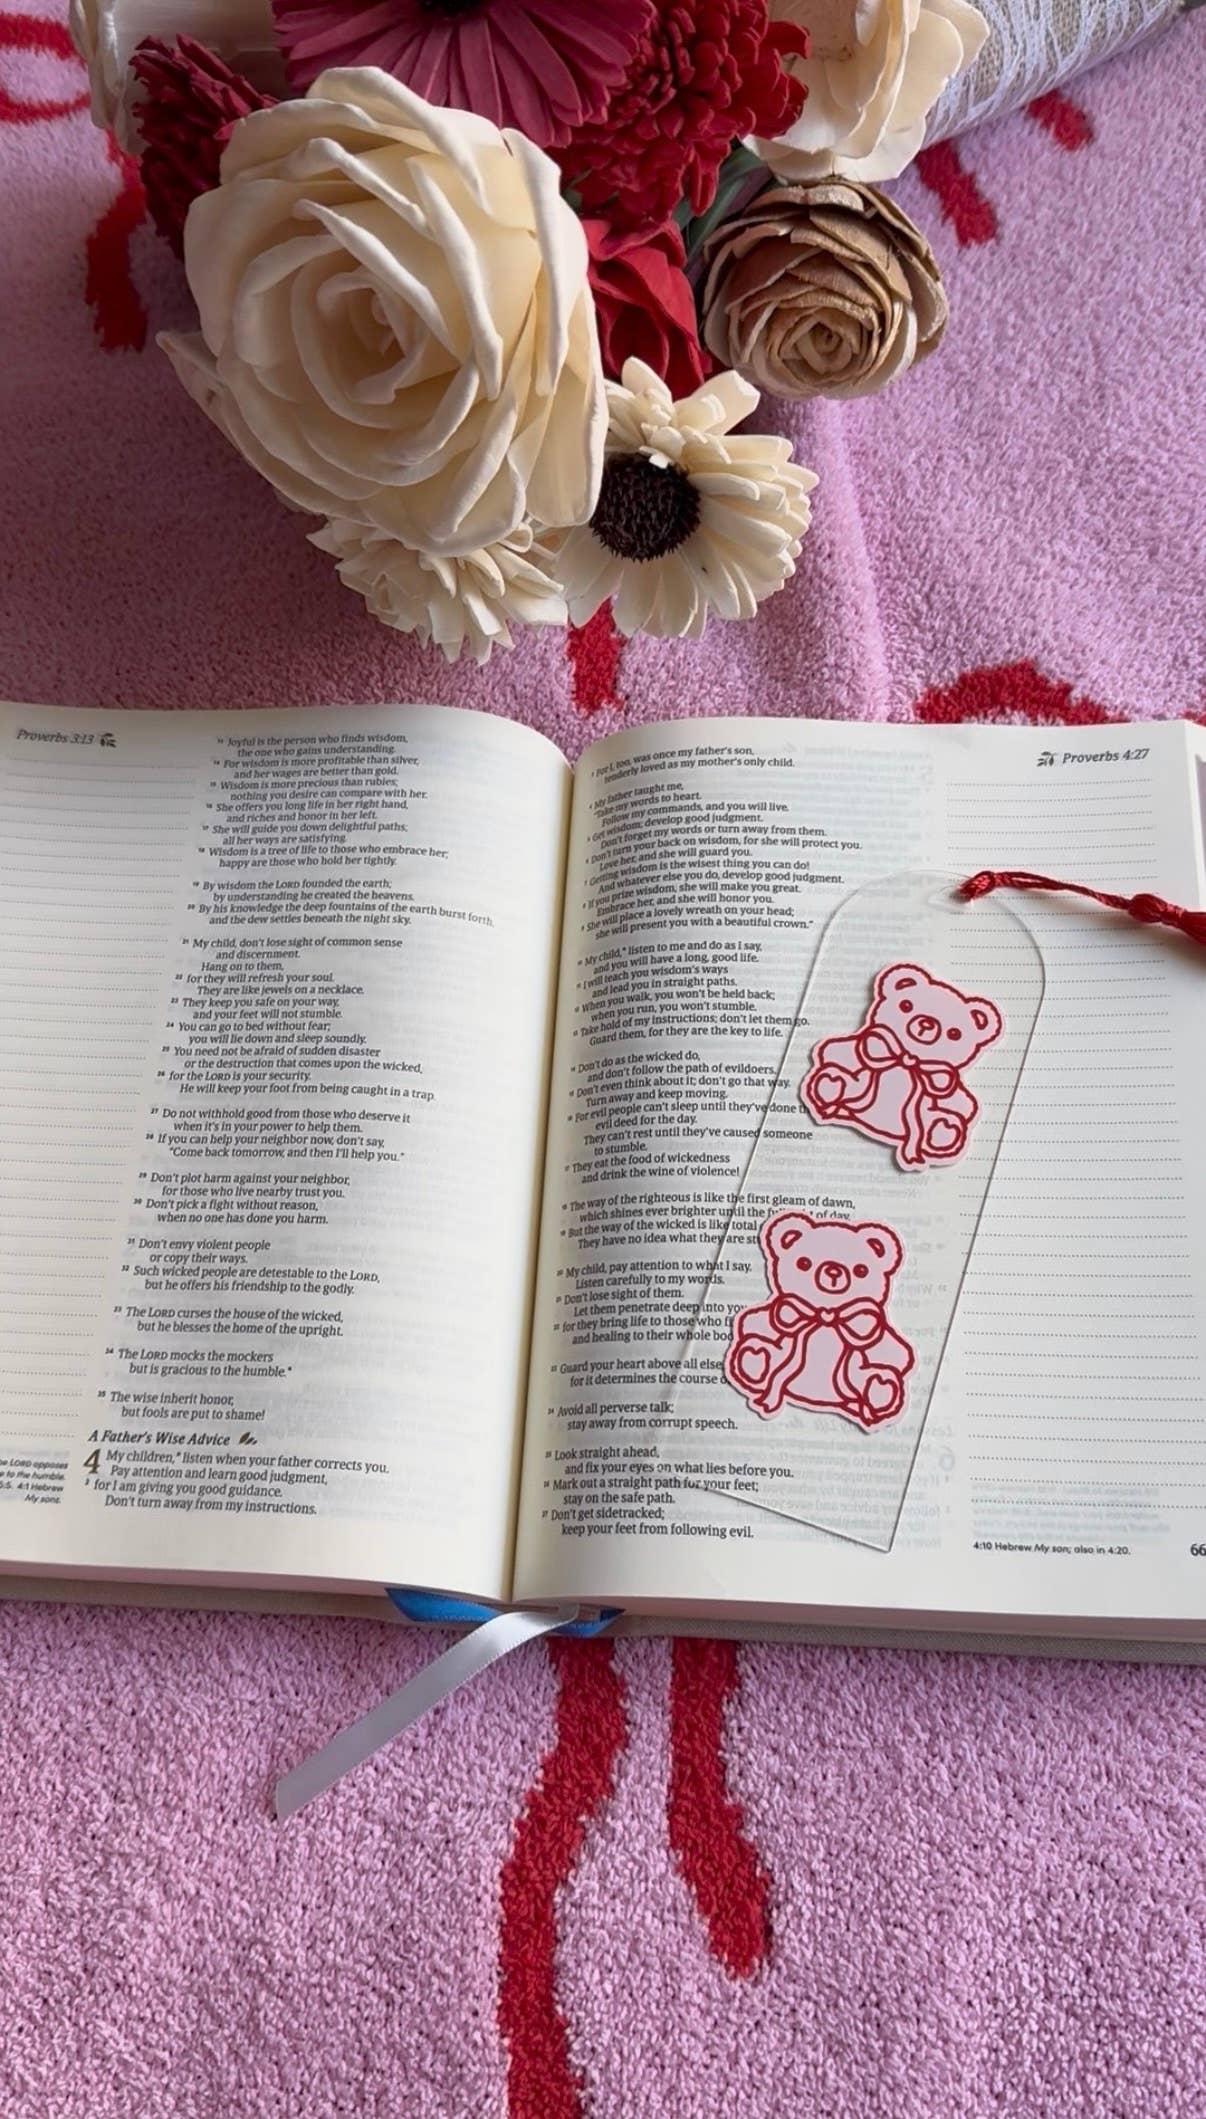 Proverbs 3:13
13 Joyful is the person who finds wisdom,
the one who gains understanding.
14 For wisdom is more profitable than silver,
and her wages are better than gold.
15 Wisdom is more precious than rubies;
nothing you desire can compare with her.
16 She offers you long life in her right hand,
and riches and honor in her left.
17 She will guide you down delightful paths;
all her ways are satisfying.
18 Wisdom is a tree of life to those who embrace her;
happy are those who hold her tightly.
19 By wisdom the LORD founded the earth;
by understanding he created the heavens.
20 By his knowledge the deep fountains of the earth burst forth,
and the dew settles beneath the night sky.
21 My child, don't lose sight of common sense
and discernment.
Hang on to them,
22 for they will refresh your soul.
They are like jewels on a necklace.
23 They keep you safe on your way,
and your feet will not stumble.
24 You can go to bed without fear;
you will lie down and sleep soundly.
25 You need not be afraid of sudden disaster
or the destruction that comes upon the wicked,
26 for the LORD is your security.
He will keep your foot from being caught in a trap.
27 Do not withhold good from those who deserve it
when it's in your power to help them.
28 If you can help your neighbor now, don't say,
"Come back tomorrow, and then I'll help you."
29 Don't plot harm against your neighbor,
for those who live nearby trust you.
30 Don't pick a fight without reason,
when no one has done you harm.
31 Don't envy violent people
or copy their ways.
32 Such wicked people are detestable to the LORD,
but he offers his friendship to the godly.
33 The LORD curses the house of the wicked,
but he blesses the home of the upright.
34 The LORD mocks the mockers
but is gracious to the humble.*
35 The wise inherit honor,
but fools are put to shame!
A Father's Wise Advice
4 My children,* listen when your father corrects you.
Pay attention and learn good judgment,
2 for I am giving you good guidance.
Don't turn away from my instructions.
LORD opposes
to the humble.
5:5. 4:1 Hebrew
My sons.
Proverbs 4:27
3 For I, too, was once my father's son,
tenderly loved as my mother's only child.
4 My father taught me,
"Take my words to heart.
Follow my commands, and you will live.
5 Get wisdom; develop good judgment.
Don't forget my words or turn away from them.
6 Don't turn your back on wisdom, for she will protect you.
Love her, and she will guard you.
7 Getting wisdom is the wisest thing you can do!
And whatever else you do, develop good judgment.
8 If you prize wisdom, she will make you great.
Embrace her, and she will honor you.
9 She will place a lovely wreath on your head;
she will present you with a beautiful crown."
10 My child,* listen to me and do as I say,
and you will have a long, good life.
11 I will teach you wisdom's ways
and lead you in straight paths.
12 When you walk, you won't be held back;
when you run, you won't stumble.
13 Take hold of my instructions; don't let them go.
Guard them, for they are the key to life.
14 Don't do as the wicked do,
and don't follow the path of evildoers.
15 Don't even think about it; don't go that way.
Turn away and keep moving.
16 For evil people can't sleep until they've done
evil deed for the day.
They can't rest until they've caused someone
to stumble.
17 They eat the food of wickedness
and drink the wine of violence!
18 The way of the righteous is like the first gleam of dawn,
which shines ever brighter until the of day.
19 But the way of the wicked is like total
They have no idea what they are
20 My child, pay attention to what I say.
Listen carefully to my words.
21 Don't lose sight of them.
Let them penetrate deep into
22 for they bring life to those who
and healing to their whole
23 Guard your heart above all else,
for it determines the course
24 Avoid all perverse talk;
stay away from corrupt speech.
25 Look straight ahead,
and fix your eyes on what lies before you.
26 Mark out a straight path for your feet;
stay on the safe path.
27 Don't get sidetracked;
keep your feet from following evil.
4:10 Hebrew My son; also in 4:20.
66